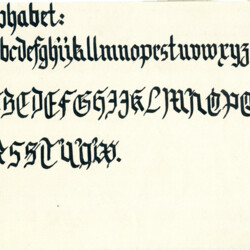 phabet:
bcdefghijklmnopqrstuvwxyz
BCDEFGHIJKLMNOPQ
RSSTUVW.